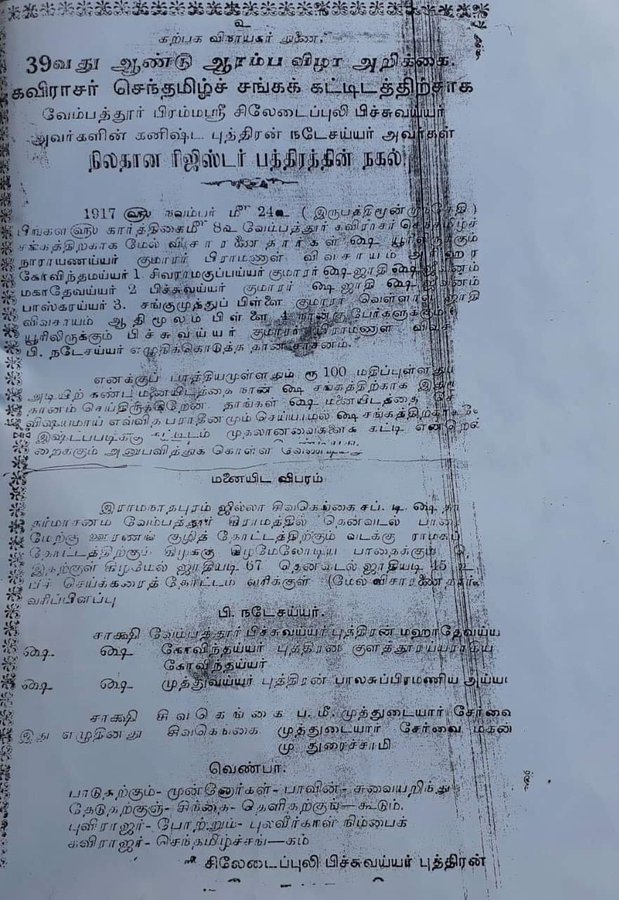 உ
கற்பக விநாயகர் துணை.
39வது ஆண்டு ஆரம்ப விழா அறிக்கை.
கவிராசர் செந்தமிழ்ச் சங்கக் கட்டிடத்திற்காக
வேம்பத்தூர் பிரம்மஸ்ரீ சிலேடைப்புலி பிச்சுவய்யர்
அவர்களின் கனிஷ்ட புத்திரன் நடேசய்யர் அவர்கள்
நிலதான ரிஜிஸ்டர் பத்திரத்தின் நகல்
1917 ௵ நவம்பர் ௴ 24௳
பிங்கள௵ கார்த்திகை௴ 8௳ வேம்பத்தூர் கவிராசர் செந்தமிழ்ச்
சங்கத்திற்காக மேல் விசாரணைதார்கள் ௸ யூரிலிருக்கும்
நாராயணய்யர் குமாரர் பிராமணாள் விவசாயம்
கோவிந்தமய்யர் 1 சிவராமசுப்பய்யர் குமாரர் ௸ ஜாதி ௸
மகாதேவய்யர் 2 பிச்சுவய்யர் குமாரர் ௸ ஜாதி ௸
பாஸ்கரய்யர் 3. சங்குமுத்துப் பிள்ளை குமாரர் வெள்ளாள ஜாதி
விவசாயம் ஆதிமூலம் பிள்ளை 4 நான்கு பேர்களுக்கும்
யூரிலிருக்கும் பிச்சுவய்யர் குமாரர் பிராமணாள்
பி. நடேசய்யர் எழுதிக்கொடுத்த தான சாசனம்.
எனக்குப் பாத்தியமுள்ளதும் ரூ 100 மதிப்புள்ளதும்
அடியிற் கண்ட மனையிடத்தை நான் ௸ சங்கத்திற்காக
தானம் செய்திருக்கிறேன் தாங்கள் ௸ மனையிடத்தை
விஷயமாய் எவ்வித பராதீனமும் செய்யாமல் ௸ சங்கத்திற்காக
இஷ்டப்படிக்கு கட்டடம் முதலானவைகளைக் கட்டி என்றென்
றைக்கும் அனுபவித்துக் கொள்ள
மனையிட விபரம்
இராமநாதபுரம் ஜில்லா சிவகெங்கை சப். டி. ௸
தர்மாசனம் வேம்பத்தூர் கிராமத்தில் தென்வடல்
மேற்கு ஊரணங் குழித் தோட்டத்திற்கும் வடக்கு
தோட்டத்திற்கும் கிழக்கு கீழமேலோடிய பாதைக்கும்
இதற்குள் கிழமேல் ஜாதியடி 67 தென்வடல் ஜாதியடி 45
செய்க்கரைத் தோட்டம் வரிக்குள் (மேல் விசாரணை
வரிப்பிளப்பு
பி. நடேசய்யர்.
சாக்ஷி வேம்பத்தூர் பிச்சுவய்யர் புத்திரன் மஹாதேவய்ய
௸ ௸ கோவிந்தய்யர் புத்திரன் குளத்தூரய்யராகிய
கோவிந்தய்யர்
௸ ௸ முத்துவய்யர் புத்திரன் பாலசுப்பிரமணிய அய்யர்
சாக்ஷி சிவகெங்கை ப. மீ. முத்துடையார் சேர்வை
இது எழுதினது சிவகெங்கை முத்துடையார் சேர்வை மகன்
மு துரைச்சாமி
வெண்பா.
பாடுதற்கும்- முன்னோர்கள்- பாவின்- சுவையறிந்து
தேடுதற்குஞ்- சிந்தை- தெளிதற்குங்—கூடும்.
புவிராஜர்- போற்றும்- புலவீர்காள் நிம்பைக்
கவிராஜர்- செந்தமிழ்ச்சங்—கம்
சிலேடைப்புலி பிச்சுவய்யர் புத்திரன்